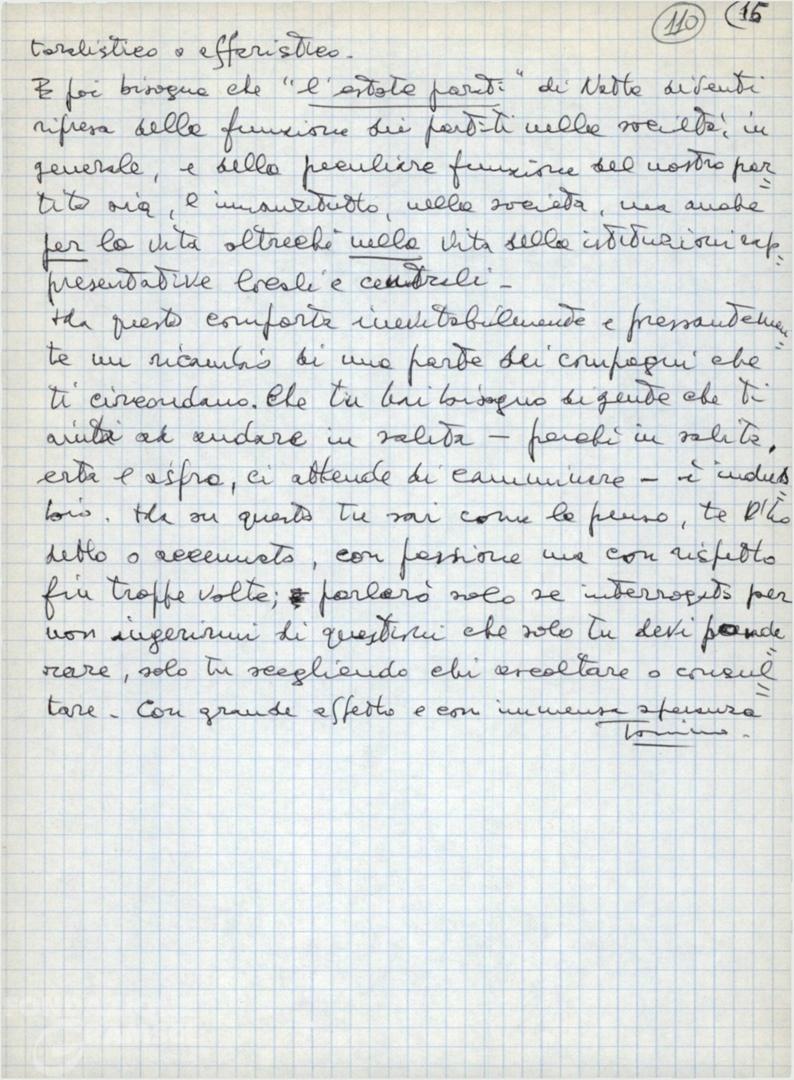 110 (15
toralistico o affaristico.
E poi bisogna che "l'estate parti" di Natta diventi
ripresa della funzione dei partiti nella società, in
generale, e della peculiare funzione del nostro par=
tito sia, e innanzitutto, nella società, ma anche
per la vita oltreché nella vita delle istituzioni rap=
presentative locali e centrali -
Ma questo comporta inevitabilmente e pressantemen=
te un ricambio di una parte dei compagni che
ti circondano. Che tu hai bisogno di gente che ti
aiuti ad andare in salita - perché in salita,
erta e aspra, ci attende di camminare - è indub=
bio. Ma su questo tu sai come la penso, te l'ho
detto o accennato, con passione ma con rispetto
fin troppe volte; parlerò solo se interrogato per
non ingerirmi di questioni che solo tu devi ponde=
rare, solo tu scegliendo chi ascoltare o consul=
tare. Con grande affetto e con immensa speranza
Tonino.